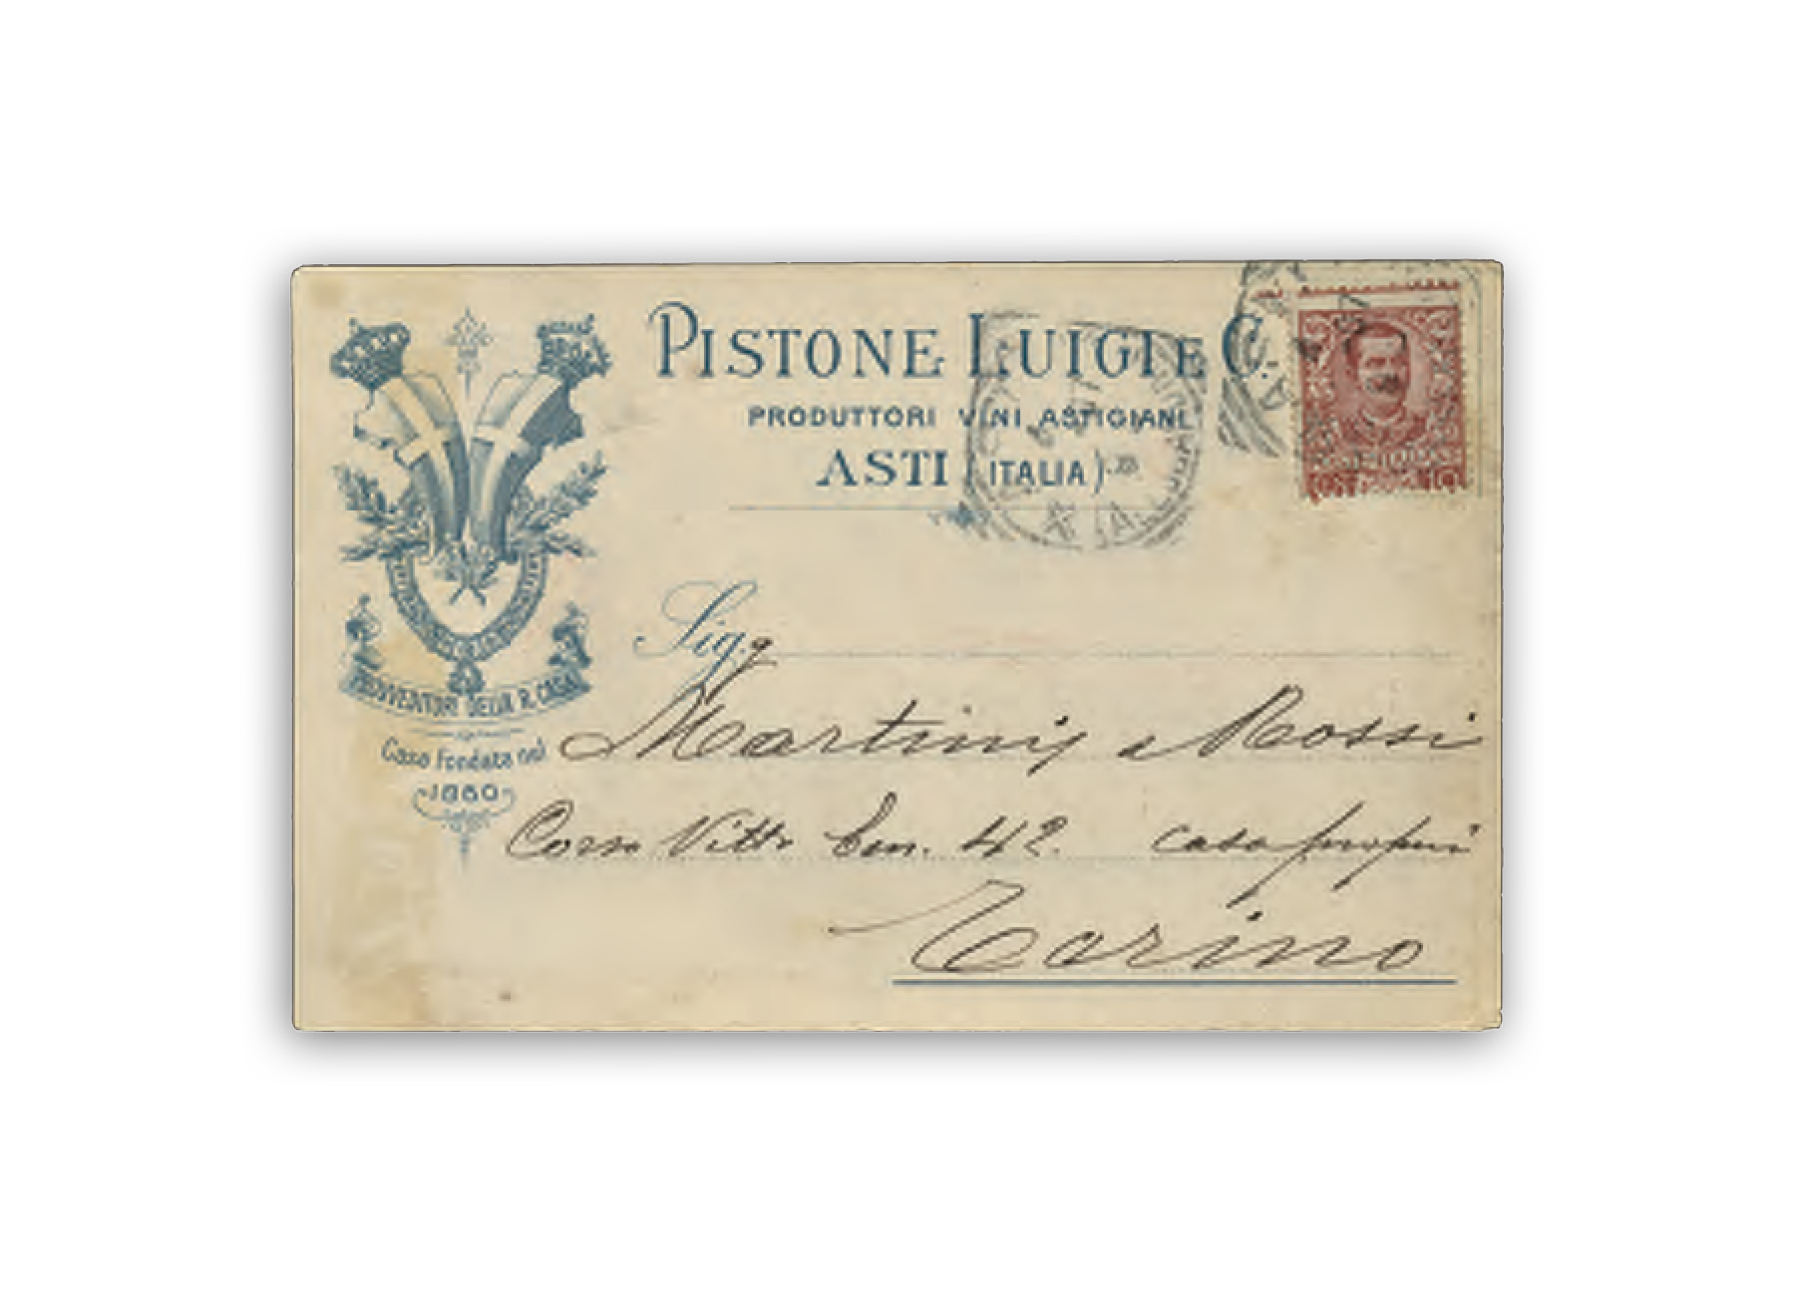 PISTONE LUIGI E C.
PRODUTTORI VINI ASTIGIANI
ASTI (ITALIA)
PROVVEDITORI DELLA R. CASA
Casa fondata nel
1880
Sigg
Martini e Rossi
Corso Vitto Em. 42. casa propri
Torino